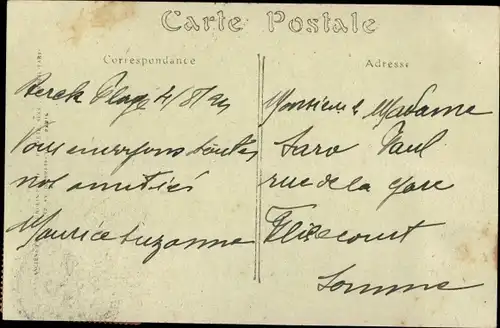 Carte Postale
Correspondance
Adresse
Berck Plage 4/8/24
Vous envoyons toutes
nos amitiés
Maurice Suzanne
Monsieur & Madame
Saro Paul
rue de la gare
Flixecourt
Somme